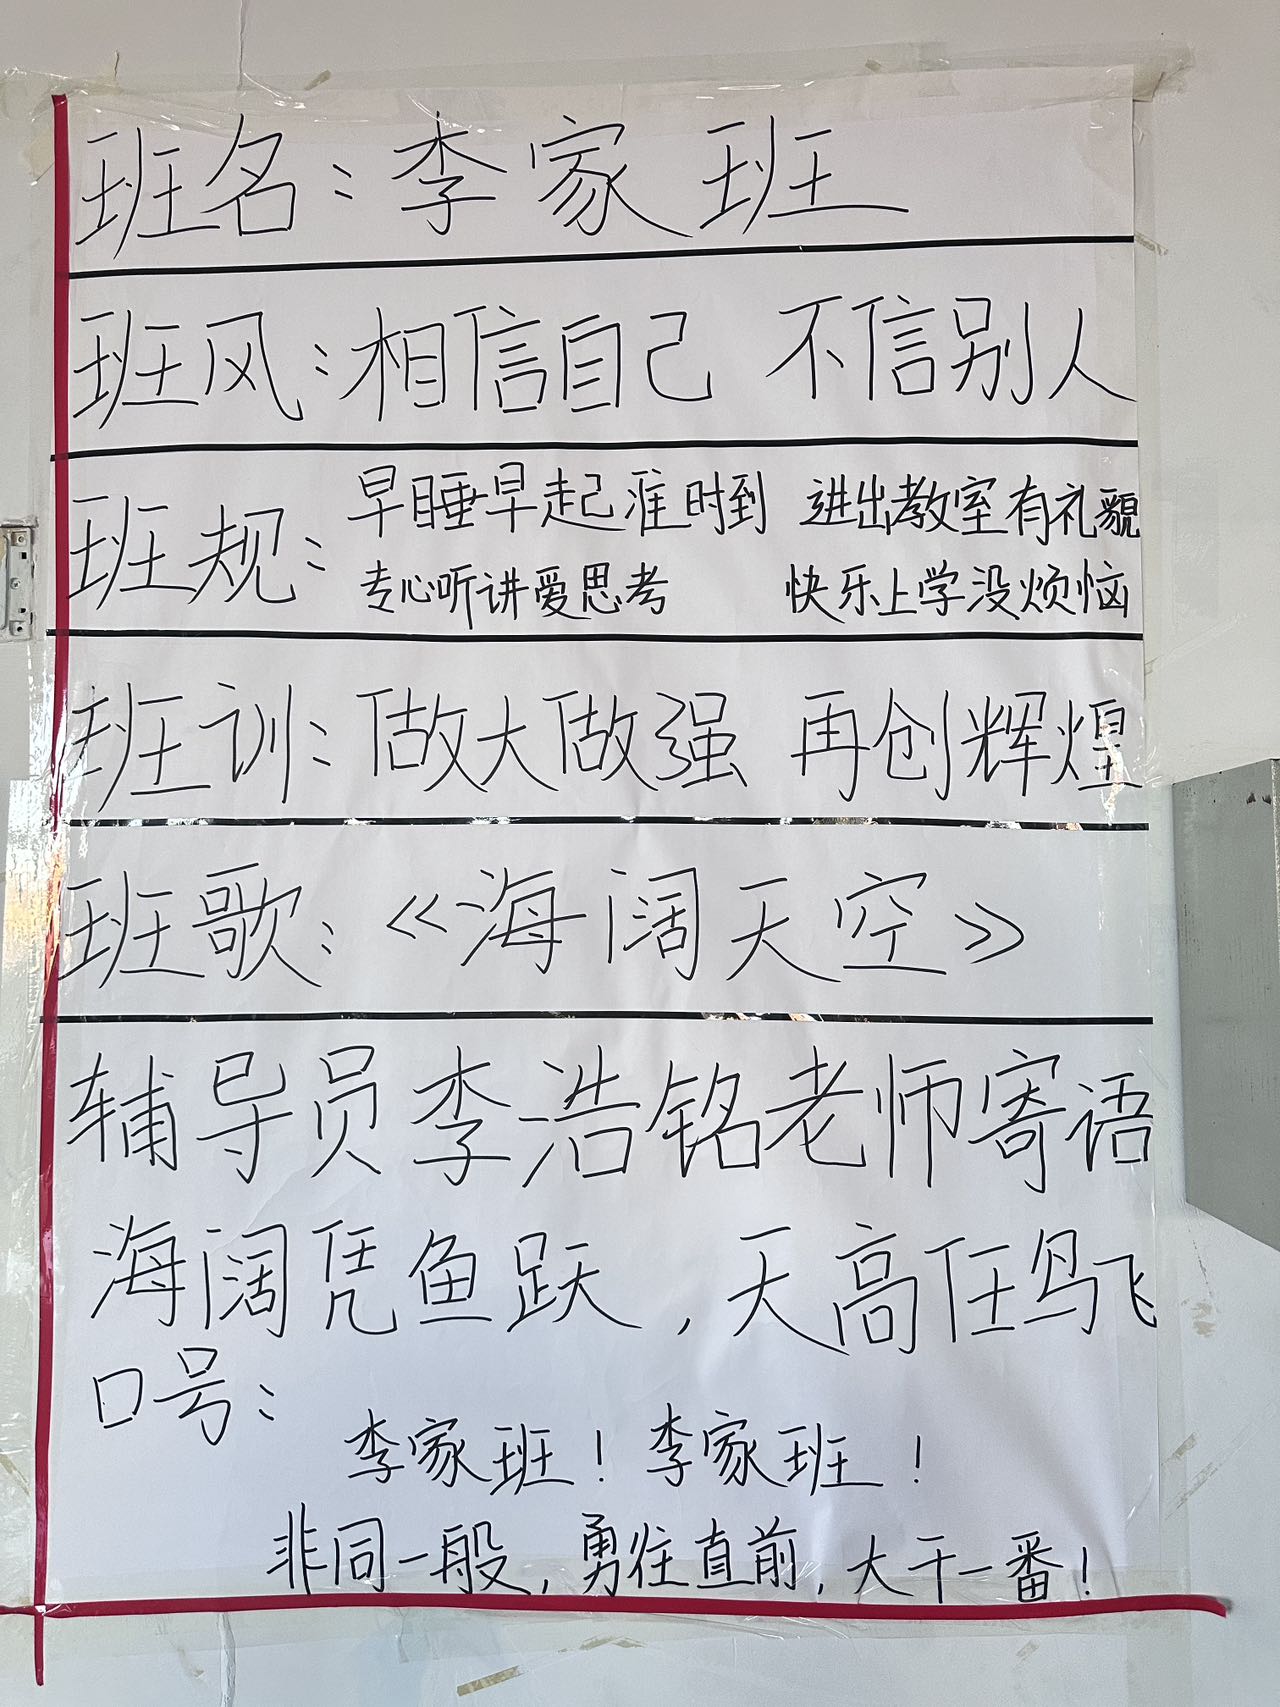 班名：李家班
班风：相信自己 不信别人
班规：早睡早起准时到 进出教室有礼貌
专心听讲爱思考 快乐上学没烦恼
班训：做大做强 再创辉煌
班歌：《海阔天空》
辅导员李浩铭老师寄语
海阔凭鱼跃，天高任鸟飞
口号：
李家班！李家班！
非同一般，勇往直前，大干一番！